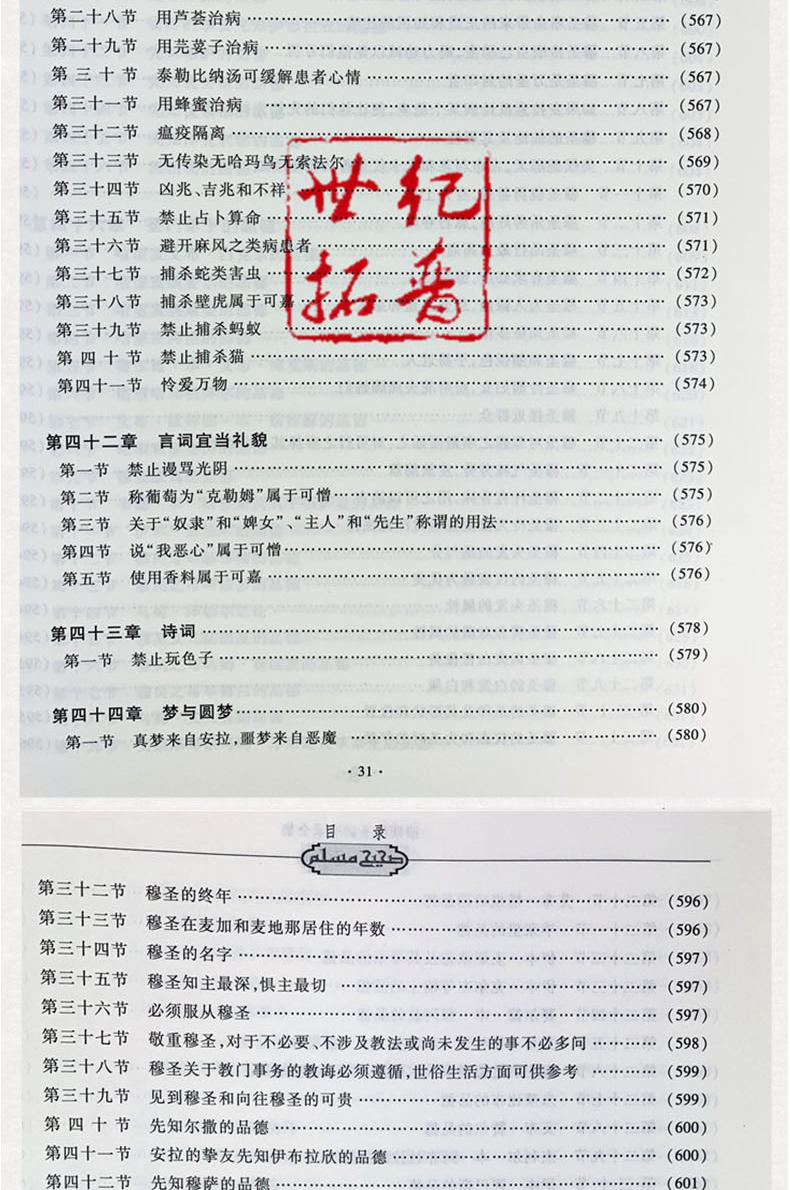 第二十八节 用芦荟治病……(567)
第二十九节 用芫荽子治病……(567)
第三十节 泰勒比纳汤可缓解患者心情……(567)
第三十一节 用蜂蜜治病……(567)
第三十二节 瘟疫隔离……(568)
第三十三节 无传染无哈玛鸟无索法尔……(569)
第三十四节 凶兆、吉兆和不祥……(570)
第三十五节 禁止占卜算命……(571)
第三十六节 避开麻风之类病患者……(571)
第三十七节 捕杀蛇类害虫……(572)
第三十八节 捕杀壁虎属于可嘉……(573)
第三十九节 禁止捕杀蚂蚁……(573)
第四十节 禁止捕杀猫……(573)
第四十一节 怜爱万物……(574)
世纪
拓普
第四十二章 言词宜当礼貌……(575)
第一节 禁止谩骂光阴……(575)
第二节 称葡萄为“克勒姆”属于可憎……(575)
第三节 关于“奴隶”和“婢女”、“主人”和“先生”称谓的用法……(576)
第四节 说“我恶心”属于可憎……(576)
第五节 使用香料属于可嘉……(576)
第四十三章 诗词……(578)
第一节 禁止玩色子……(579)
第四十四章 梦与圆梦……(580)
第一节 真梦来自安拉,噩梦来自恶魔……(580)
·31·
目 录
صحيح مسلم
第三十二节 穆圣的终年……(596)
第三十三节 穆圣在麦加和麦地那居住的年数……(596)
第三十四节 穆圣的名字……(597)
第三十五节 穆圣知主最深,惧主最切……(597)
第三十六节 必须服从穆圣……(597)
第三十七节 敬重穆圣,对于不必要、不涉及教法或尚未发生的事不必多问……(598)
第三十八节 穆圣关于教门事务的教诲必须遵循,世俗生活方面可供参考……(599)
第三十九节 见到穆圣和向往穆圣的可贵……(599)
第四十节 先知尔撒的品德……(600)
第四十一节 安拉的挚友先知伊布拉欣的品德……(600)
第四十二节 先知穆萨的品德……(601)